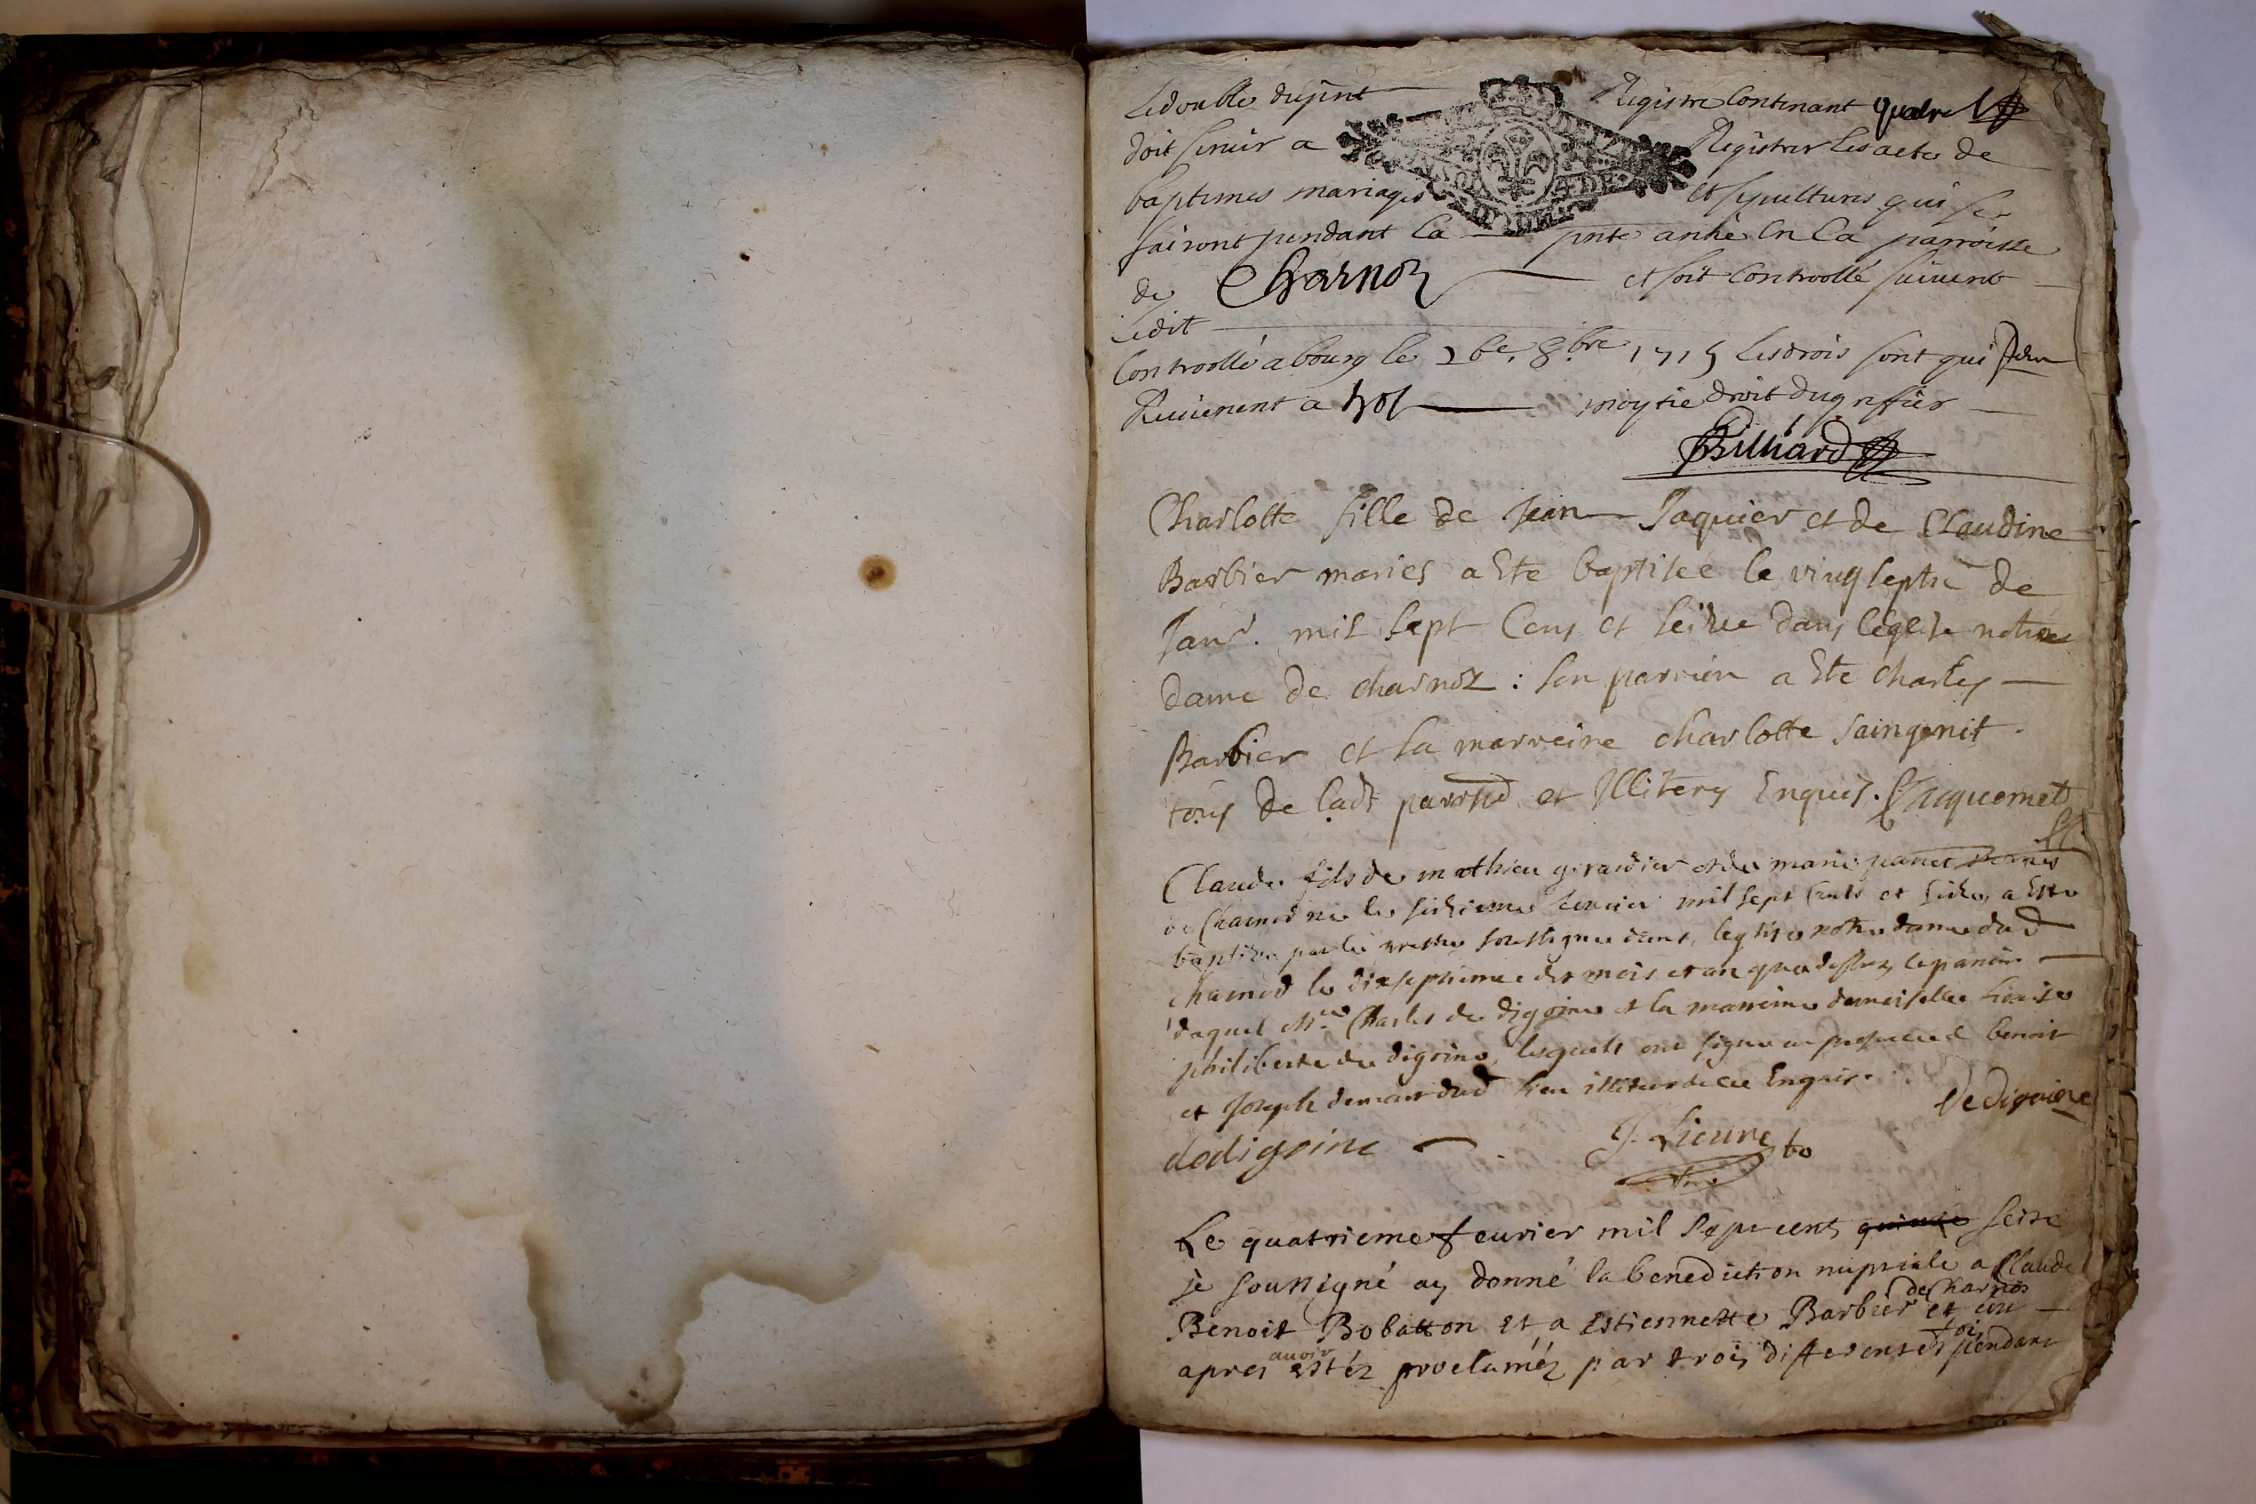 Le double du pnt Registre Contenant quatre
doit servir a Registrer les actes de
baptemes mariages et sepultures qui se
fairont pendant la pnte anné En la parroisse
de Charnoz et soit Controollé suivent
Ledit
Controollé a bourg le 8bre 1715 Les drois sont qui
Revienent a moytié droit du greffier
Billiard
Charlotte fille de Jean Jaquier et de Claudine
Barbier maries a Ete baptisée le vingt septie de
Janv. mil sept Cens et seize dans leglise notre
dame de charnoz : son parrein a Ete Charles
Barbier et sa marreine charlotte Saingenit
tous de ladt parrsse et Illiterez Enquis. Jacquemet
Claude fils de mathieu girardier et de marie panet mariés
de Charnoz né le seizieme fevrier mil sept Cents et seize, a Esté
baptisé par le prestre soussigné dans leglise notre dame dud
charnoz le dix septieme des mois et an que dessus, le parrain
duquel Mre Charles de digoine et la marreine demoiselle
philiberte de digoine, lesquels ont signé en presence de benoit
et Joseph dud lieu Enquis.
De digoine
dedigoine J. Lieure
Le quatrieme feurier mil sept cent quinze seize
je soussigné ay donné la benediction nuptiale a Claude
de Charnos
Benoit Bobatton et a Estiennette Barbier et
avoir
apres estéz proclaméz par trois differentes fois pendant